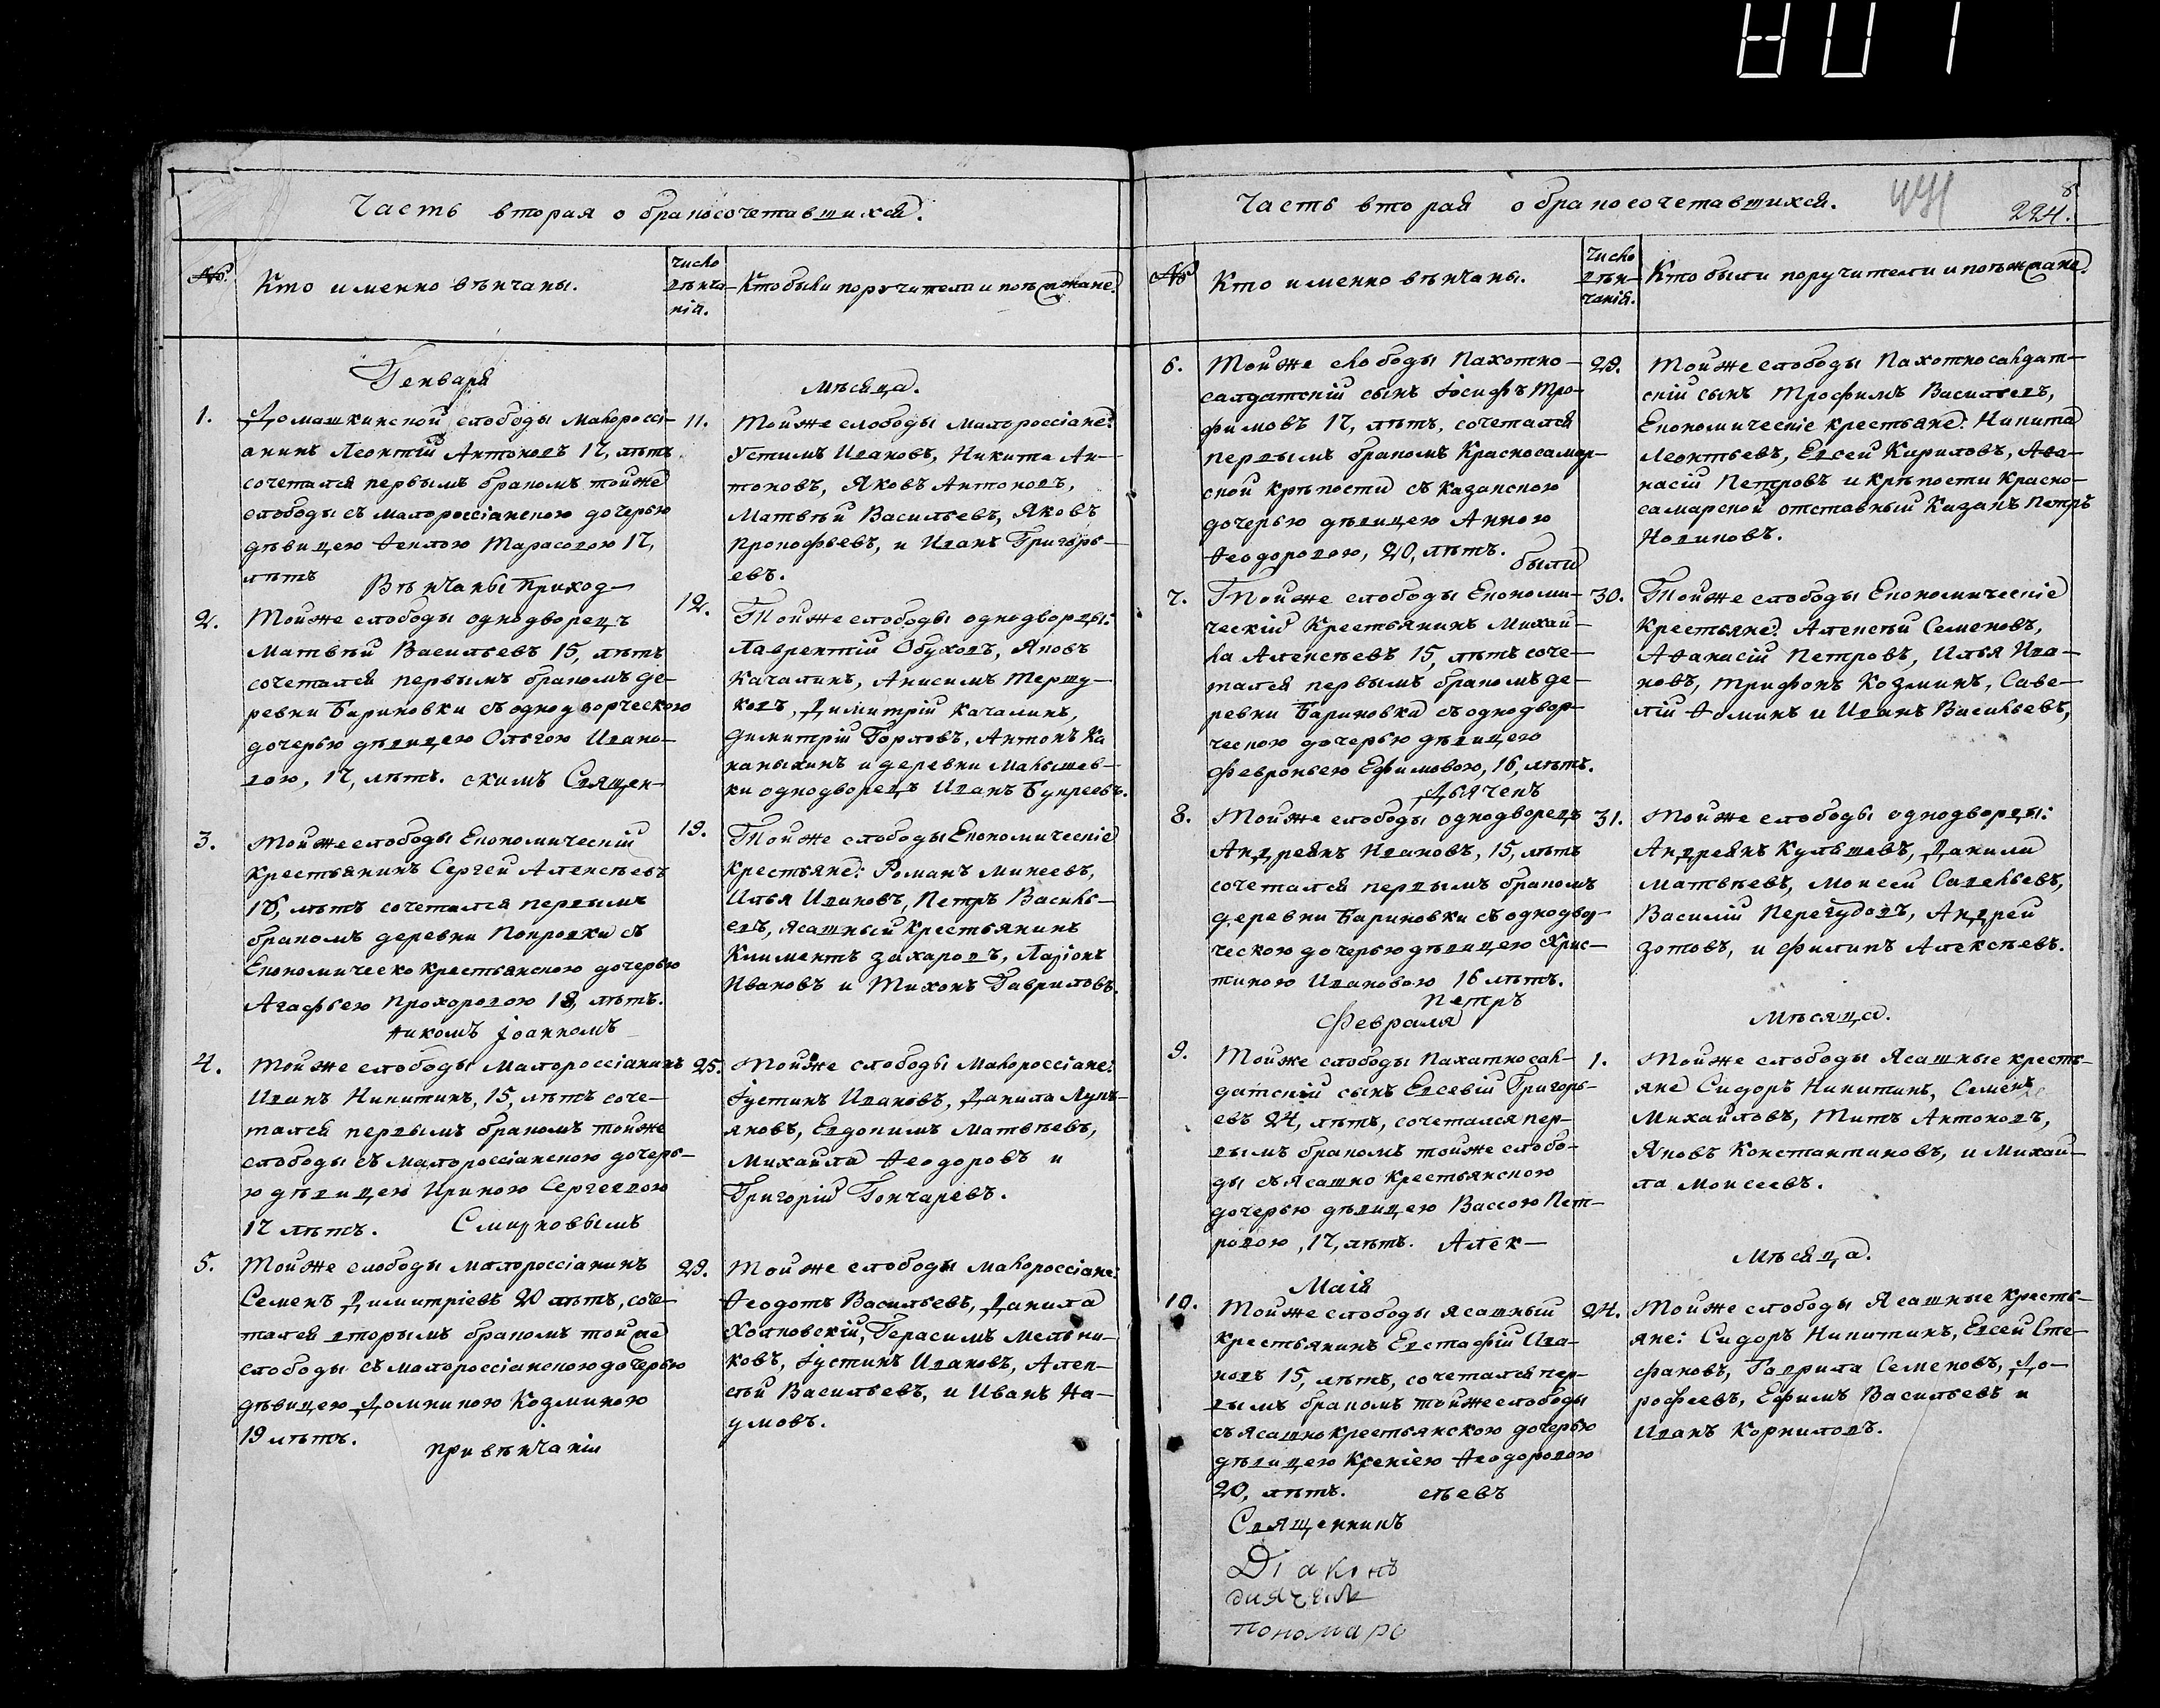 801
Часть вторая о бракосочетавшихся.
№.
Кто именно вѣнчаны.
Число
вѣнча-
нія.
Кто были поручители и поѣзжане.
Генваря
мѣсяца.
1.
Домашкинской слободы Малороссі-
анинъ Леонтій Антоновъ 17, лѣтъ
сочетался первымъ бракомъ тойже
слободы съ малороссіанскою дочерью
дѣвицею Ѳеклою Тарасовою 17,
лѣтъ
Вѣнчаны Приход-
11.
Тойже слободы малороссіане:
Устимъ Ивановъ, Никита Ан-
тоновъ, Яковъ Антоновъ,
Матвѣй Васильевъ, Яковъ
Прокофьевъ, и Иванъ Григорь-
евъ.
2.
Тойже слободы однодворецъ
Матвѣй Васильевъ 15, лѣтъ
сочетался первымъ бракомъ де-
ревни Бариновки съ однодворческою
дочерью дѣвицею Ольгою Ивано-
вою, 17, лѣтъ. скимъ Священ-
12.
Тойже слободы однодворцы:
Лаврентій Обуховъ, Яковъ
Качалинъ, Анисимъ Терту-
ковъ, Димитрій Качалинъ,
Димитрій Горловъ, Антонъ Ка
каныхинъ и деревни Малышев-
ки однодворецъ Иванъ Букреевъ.
3.
Тойже слободы Економическій
крестьянинъ Сергей Алексѣевъ
16, лѣтъ сочетался первымъ
бракомъ деревни Покровки съ
Економическо крестьянскою дочерью
Агафьею Прохоровою 18, лѣтъ.
никомъ Іоанномъ
19.
Тойже слободы Економическіе
крестьяне: Романъ Минеевъ,
Илья Ивановъ, Петръ Василь-
евъ, ясашный крестьянинъ
Климентъ Захаровъ, Ларіонъ
Ивановъ и Тихонъ Гавриловъ.
4.
Тойже слободы Малороссіанинъ
Иванъ Никитинъ, 15, лѣтъ соче-
тался первымъ бракомъ тойже
слободы съ Малороссіанскою дочерь-
ю дѣвицею Ириною Сергеевою
17 лѣтъ. Смирновымъ
25.
Тойже слободы Малороссіане:
Іустинъ Ивановъ, Данила Лукъ-
яновъ, Евдокимъ Матвѣевъ,
Михайла Ѳеодоровъ и
Григорій Гончаревъ.
5.
Тойже слободы малороссіанинъ
Семенъ Димитріевъ 20 лѣтъ, соче-
тался вторымъ бракомъ тойже
слободы съ малороссіанскою дочерью
дѣвицею Домникою Козминою
19 лѣтъ.
при вѣнчаніи
29.
Тойже слободы малороссіане:
Ѳеодотъ Васильевъ, Данила
Холковскій, Герасимъ Мельни-
ковъ, Іустинъ Ивановъ, Алек-
сѣй Васильевъ, и Иванъ На-
умовъ.
Часть вторая о бракосочетавшихся.
224.
№
Кто именно вѣнчаны.
Число
вѣн-
чанія.
Кто были поручители и поѣзжане.
6.
Тойже слободы Пахотно-
салдатскій сынъ Іосифъ Тро-
фимовъ 17, лѣтъ, сочетался
первымъ бракомъ Красносамар-
ской крѣпости съ казанскою
дочерью дѣвицею Анною
Ѳеодоровою, 20, лѣтъ.
были
29.
Тойже слободы Пахотносалдат-
скій сынъ Трофимъ Васильевъ,
Економическіе крестьяне: Никита
Леонтьевъ, Евсей Кириловъ, Аѳа-
насій Петровъ и крѣпости Красно-
самарской отставный Казакъ Петръ
Новиковъ.
7.
Тойже слободы Економи-
ческій Крестьянинъ Михай-
ла Алексѣевъ 15, лѣтъ соче-
тался первымъ бракомъ де-
ревни Бариновки съ однодвор-
ческою дочерью дѣвицею
Февроньею Ефимовою, 16, лѣтъ.
Дьячекъ
30.
Тойже слободы Економическіе
Крестьяне: Алексѣй Семеновъ,
Аѳанасій Петровъ, Илья Ива-
новъ, Трифонъ Козминъ, Саве-
лій Ѳоминъ и Иванъ Васильевъ,
8.
Тойже слободы однодворецъ
Андреянъ Ивановъ, 15, лѣтъ
сочетался первымъ бракомъ
деревни Бариновки съ однодвор-
ческою дочерью дѣвицею Хрис-
тиною Ивановою 16 лѣтъ.
Петръ
31.
Тойже слободы однодворцы:
Андреянъ Кулешевъ, Данила
Матвѣевъ, Моисей Савельевъ,
Василій Перегудовъ, Андрей
Зотовъ, и Филипъ Алексѣевъ.
Февраля
Мѣсяца.
9.
Тойже слободы Пахатносал-
датскій сынъ Евсевій Григорь-
евъ 24, лѣтъ, сочетался пер-
вымъ бракомъ тойже слобо-
ды съ Ясашно крестьянскою
дочерью дѣвицею Вассою Пет-
ровою, 17, лѣтъ. Алек-
1.
Тойже слободы Ясашные кресть-
яне Сидоръ Никитинъ, Семенъ
Михайловъ, Титъ Антоновъ,
Яковъ Константиновъ, и Михай-
ла Моисеевъ.
Маія
Мѣсяца.
10.
Тойже слободы ясашный
крестьянинъ Евстафій Ива-
новъ 15, лѣтъ, сочетался пер-
вымъ бракомъ тойже слободы
съ ясашно крестьянскою дочерью
дѣвицею Ксеніею Ѳеодоровою
20, лѣтъ. сѣевъ
24.
Тойже слободы Ясашные кресть-
яне: Сидоръ Никитинъ, Евсей Сте-
фановъ, Гаврила Семеновъ, До-
рофеевъ, Ефимъ Васильевъ и
Иванъ Корниловъ.
Священникъ
Діаконъ
диячекъ
пономарь